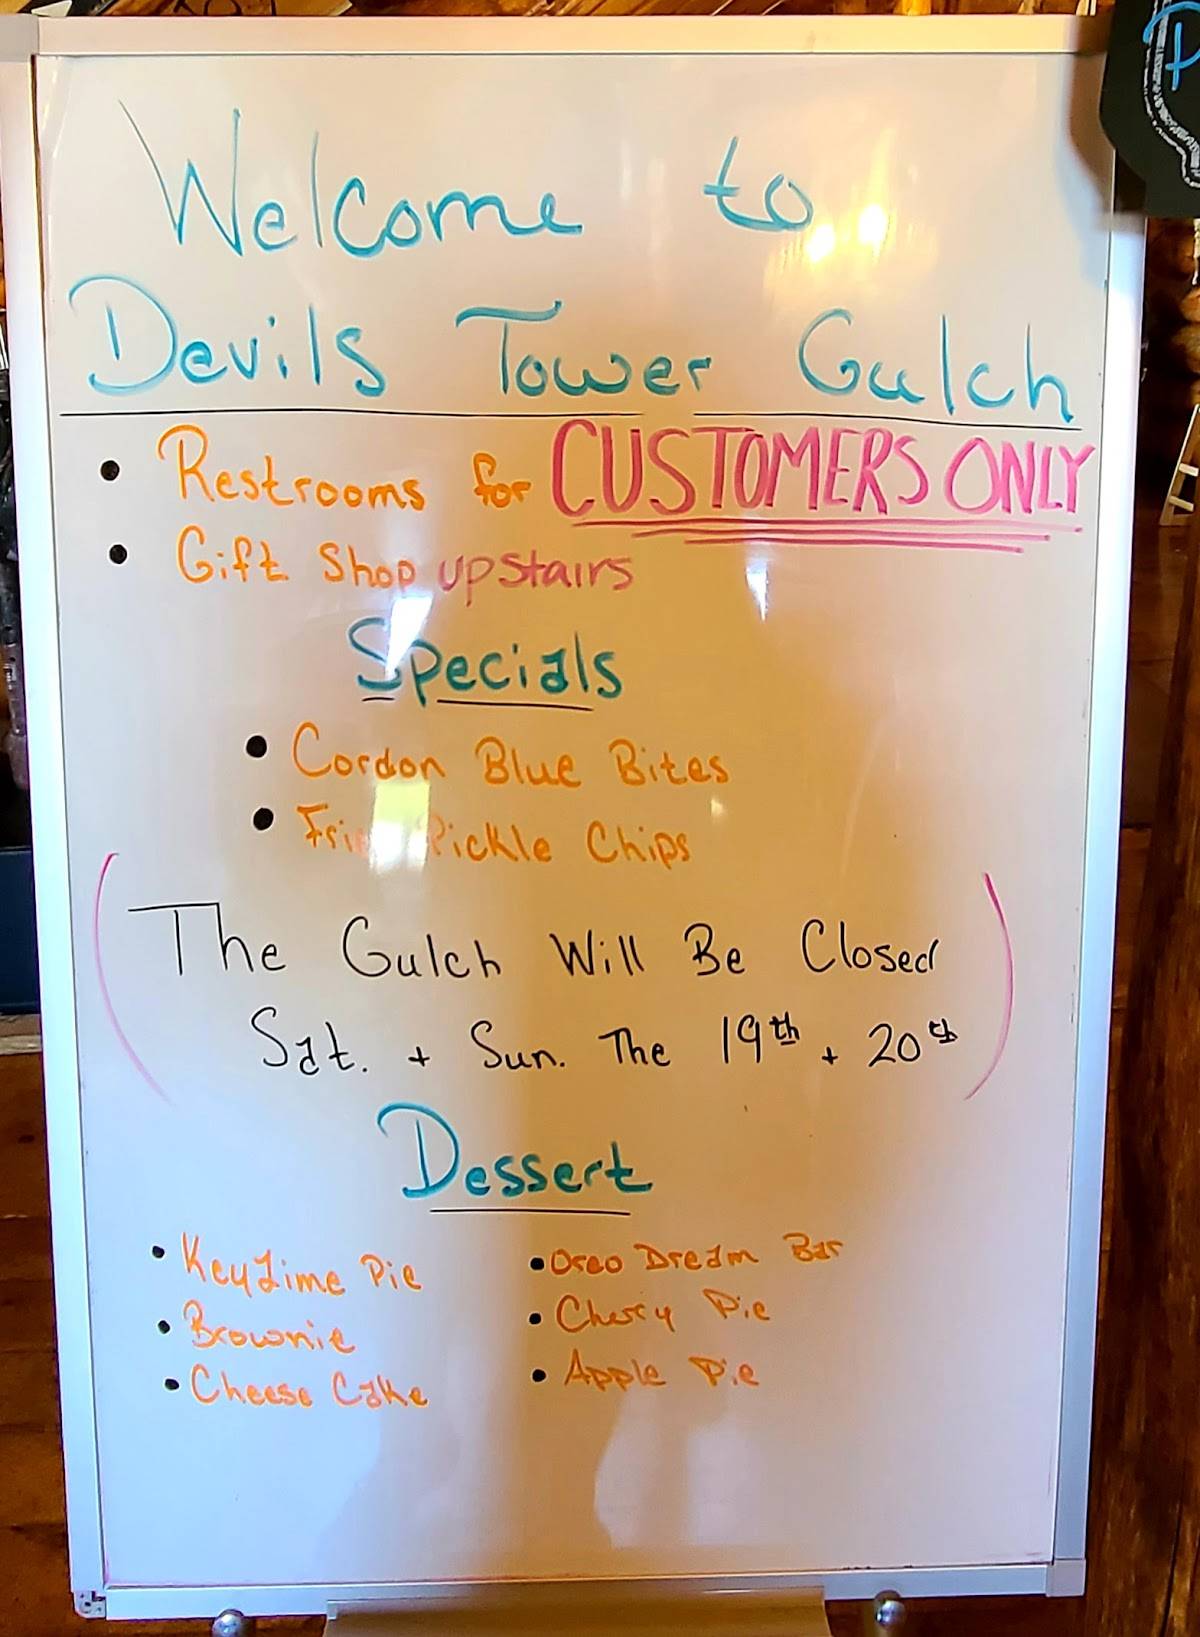 Welcome to
Devils Tower Gulch
• Restrooms for CUSTOMERS ONLY
• Gift Shop upstairs
Specials
• Cordon Blue Bites
• Fried Pickle Chips
(The Gulch Will Be Closed
Sat. + Sun. The 19th + 20th)
Dessert
• Key Lime Pie
• Brownie
• Cheese Cake
• Oreo Dream Bar
• Cherry Pie
• Apple Pie